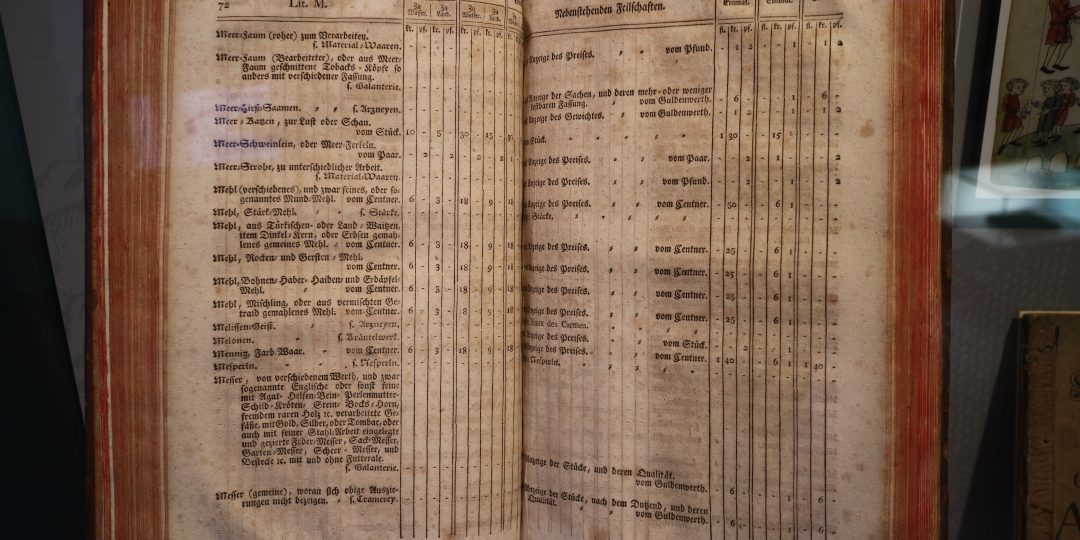 72
Lit. M.
Zu Wasser. Zu Land. Zu Wasser. Zu Land. Zu
kr. pf. kr. pf. kr. pf. kr. pf. kr.
Meer-Faum (roher) zum Verarbeiten.
s. Material-Waaren.
Meer-Faum (Bearbeiteter), oder aus Meer-
Faum geschnittene Tobacks-Köpfe so
anders mit verschiedener Fassung.
s. Galanterie.
Meer-Hirs-Saamen. s. Arzneyen.
Meer-Katzen, zur Lust oder Schau.
vom Stück. 10 - 5 - 30 - 15 -
Meer-Schweinlein, oder Meer-Ferkeln.
vom Paar. - 2 - 2 - 2 - 2
Meer-Strohe, zu unterschiedlicher Arbeit.
s. Material-Waaren.
Mehl (verschiedenes), und zwar feines, oder so-
genanntes Mund-Mehl. vom Centner. 6 - 3 - 18 - 9 - 18
Mehl, Stärk-Mehl. s. Stärke.
Mehl, aus Türkischen- oder Land-Waitzen,
item Dinkel-Kern, oder Erbsen gemah-
lenes gemeines Mehl. vom Centner. 6 - 3 - 18 - 9 - 18
Mehl, Rocken- und Gersten-Mehl.
vom Centner. 6 - 3 - 18 - 9 - 18
Mehl, Bohnen-Haber-Haiden- und Erdäpfel-
Mehl. vom Centner. 6 - 3 - 18 - 9 - 18
Mehl, Mischling, oder aus vermischten Ge-
traid gemahlenes Mehl. vom Centner. 6 - 3 - 18 - 9 - 18
Melissen-Geist. s. Arzneyen.
Melonen. s. Kräutelwerk.
Mennig, Farb-Waar. vom Centner. 6 - 3 - 18 - 9 - 18
Mesperln. s. Nesperln.
Messer, von verschiedenem Werth, und zwar
sogenannte Englische oder sonst feine
mit Agat-Helfen-Bein-Perlenmutter-
Schild-Kröten-Stein-Bocks-Horn,
fremdem raren Holz ꝛc. verarbeitete Ge-
fäße, mit Gold, Silber, oder Tombac, oder
auch mit feiner Stahl-Arbeit eingelegte
und gezierte Feder-Messer, Sack-Messer,
Garten-Messer, Scheer-Messer, und
Bestecke ꝛc. mit und ohne Futterale.
s. Galanterie.
Messer (gemeine), woran sich obige Auszie-
rungen nicht bezeigen. s. Cramerey.
Nebenstehenden Feilschaften.
fl. kr. pf. fl. kr. pf. fl. kr. pf.
Anzeige des Preises. vom Pfund. - 1 2 - - 1 - 1 2
Anzeige der Sachen, und deren mehr- oder weniger
kostbaren Fassung. vom Guldenwerth. - 6 - - 1 - - 6 -
Anzeige des Gewichtes. vom Guldenwerth. - 1 2 - - 1 - 1 2
Stück. 1 30 - - 15 -
Anzeige des Preises. vom Paar. - 2 - - 1 - - 2
Anzeige des Preises. vom Pfund. - 2 - - 1 - - 2
Anzeige des Preises. vom Centner. - 50 - - 6 1
Stärke.
Anzeige des Preises. vom Centner. - 25 - - 6 1
Anzeige des Preises. vom Centner. - 25 - - 6 1
Anzeige des Preises. vom Centner. - 25 - - 6 1
Anzeige des Preises. vom Centner. - 25 - - 6 1
Eaux des Carmes.
Anzeige des Preises. vom Stück. - 2
Anzeige des Preises. vom Centner. 1 40 - - 6 1 1 40 -
Nesperln.
Anzeige der Stücke, und deren Qualität.
vom Guldenwerth. - 6 - - 1 - - 6 -
Anzeige der Stücke, nach dem Dutzend, und deren
Qualität. vom Guldenwerth. - 6 - - 1 - - 6 -